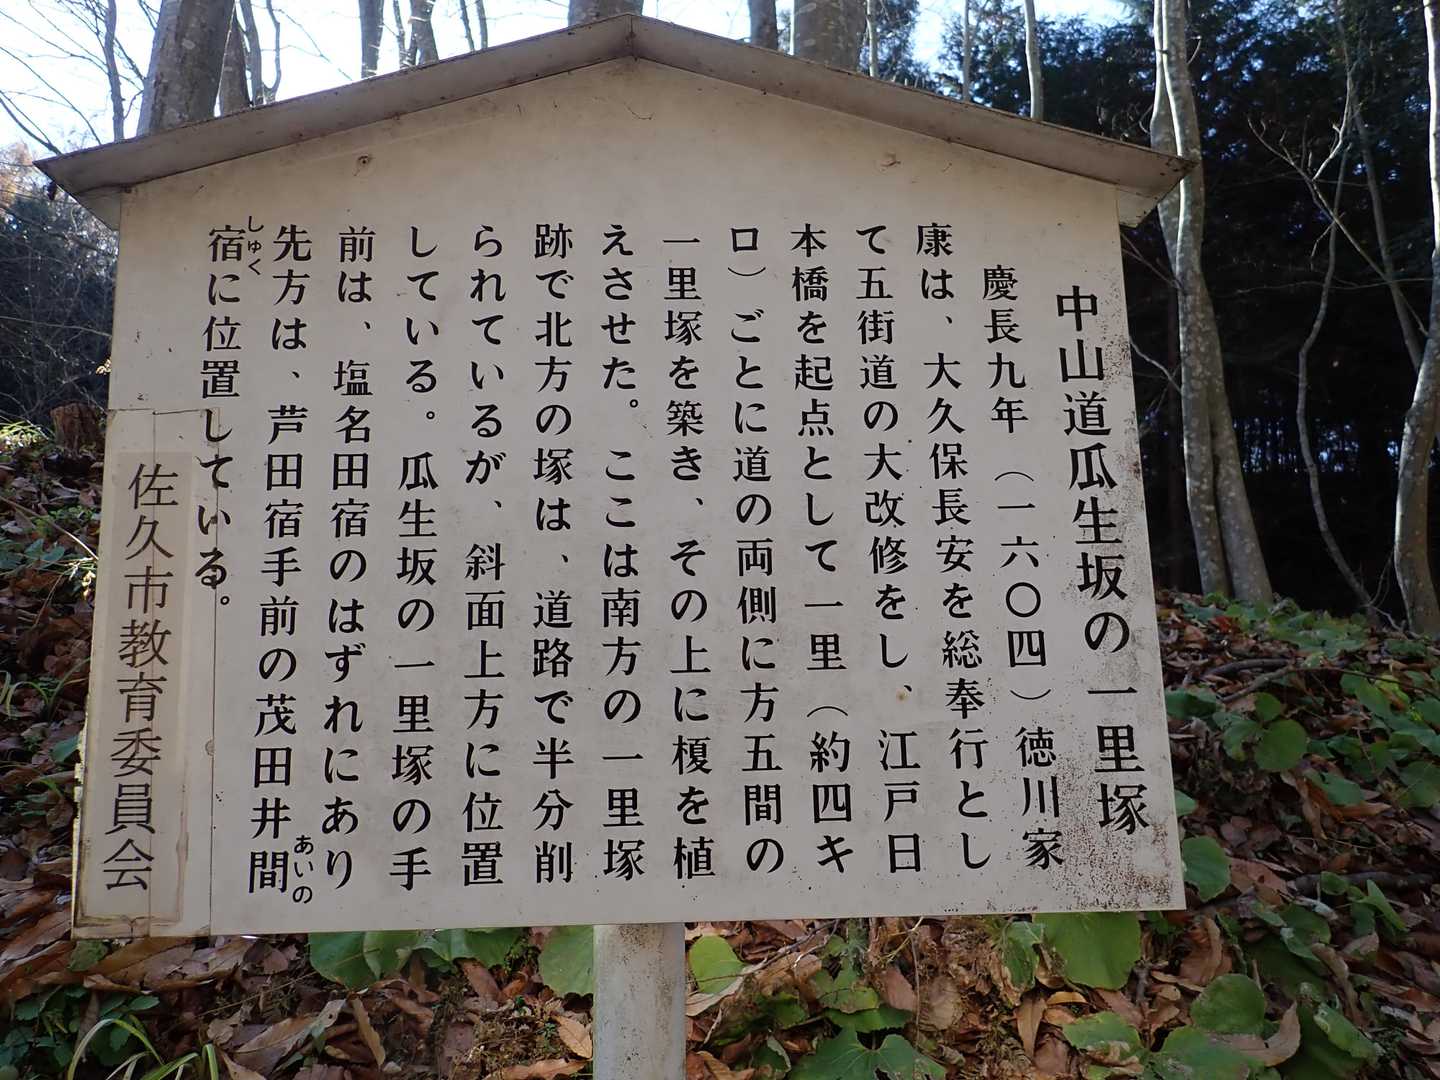 中山道瓜生坂の一里塚
慶長九年（一六〇四）徳川家
康は、大久保長安を総奉行とし
て五街道の大改修をし、江戸日
本橋を起点として一里（約四キ
ロ）ごとに道の両側に方五間の
一里塚を築き、その上に榎を植
えさせた。ここは南方の一里塚
跡で北方の塚は、道路で半分削
られているが、斜面上方に位置
している。瓜生坂の一里塚の手
前は、塩名田宿のはずれにあり
先方は、芦田宿手前の茂田井間
あいの
宿に位置している。
しゅく
佐久市教育委員会